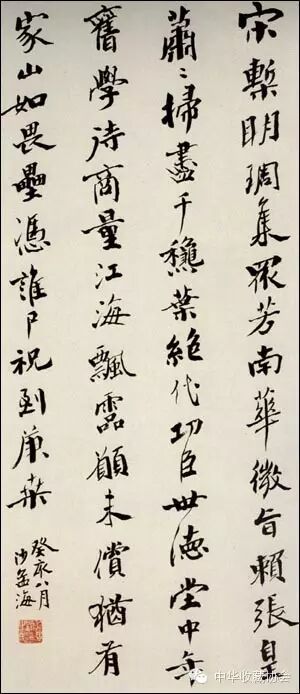 宋槧明琱集眾芳南華微旨賴張皇
蕭〻掃盡千穐葉絕代功臣世德堂中年
舊學待商量江海飄零願未償猶有
家山如畏壘憑誰尸祝到庚桑
癸亥八月
沙孟海
中华收藏协会